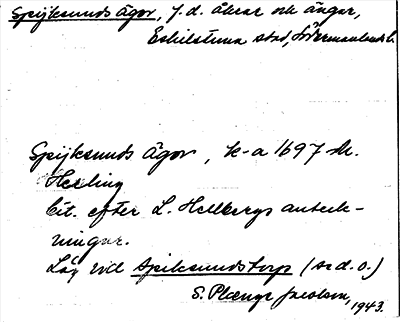 Spijksunds ägor, f.d. åkrar och ängar,
Eskilstuna stad, Södermanlands l.
Spijksunds ägor, k-a 1697 Av.
Hesling
Cit. efter L. Hellbergs anteck-
ningar.
Låg vid Spiksundstorp (se d.o.)
S. Plænge Jacobson, 1943.